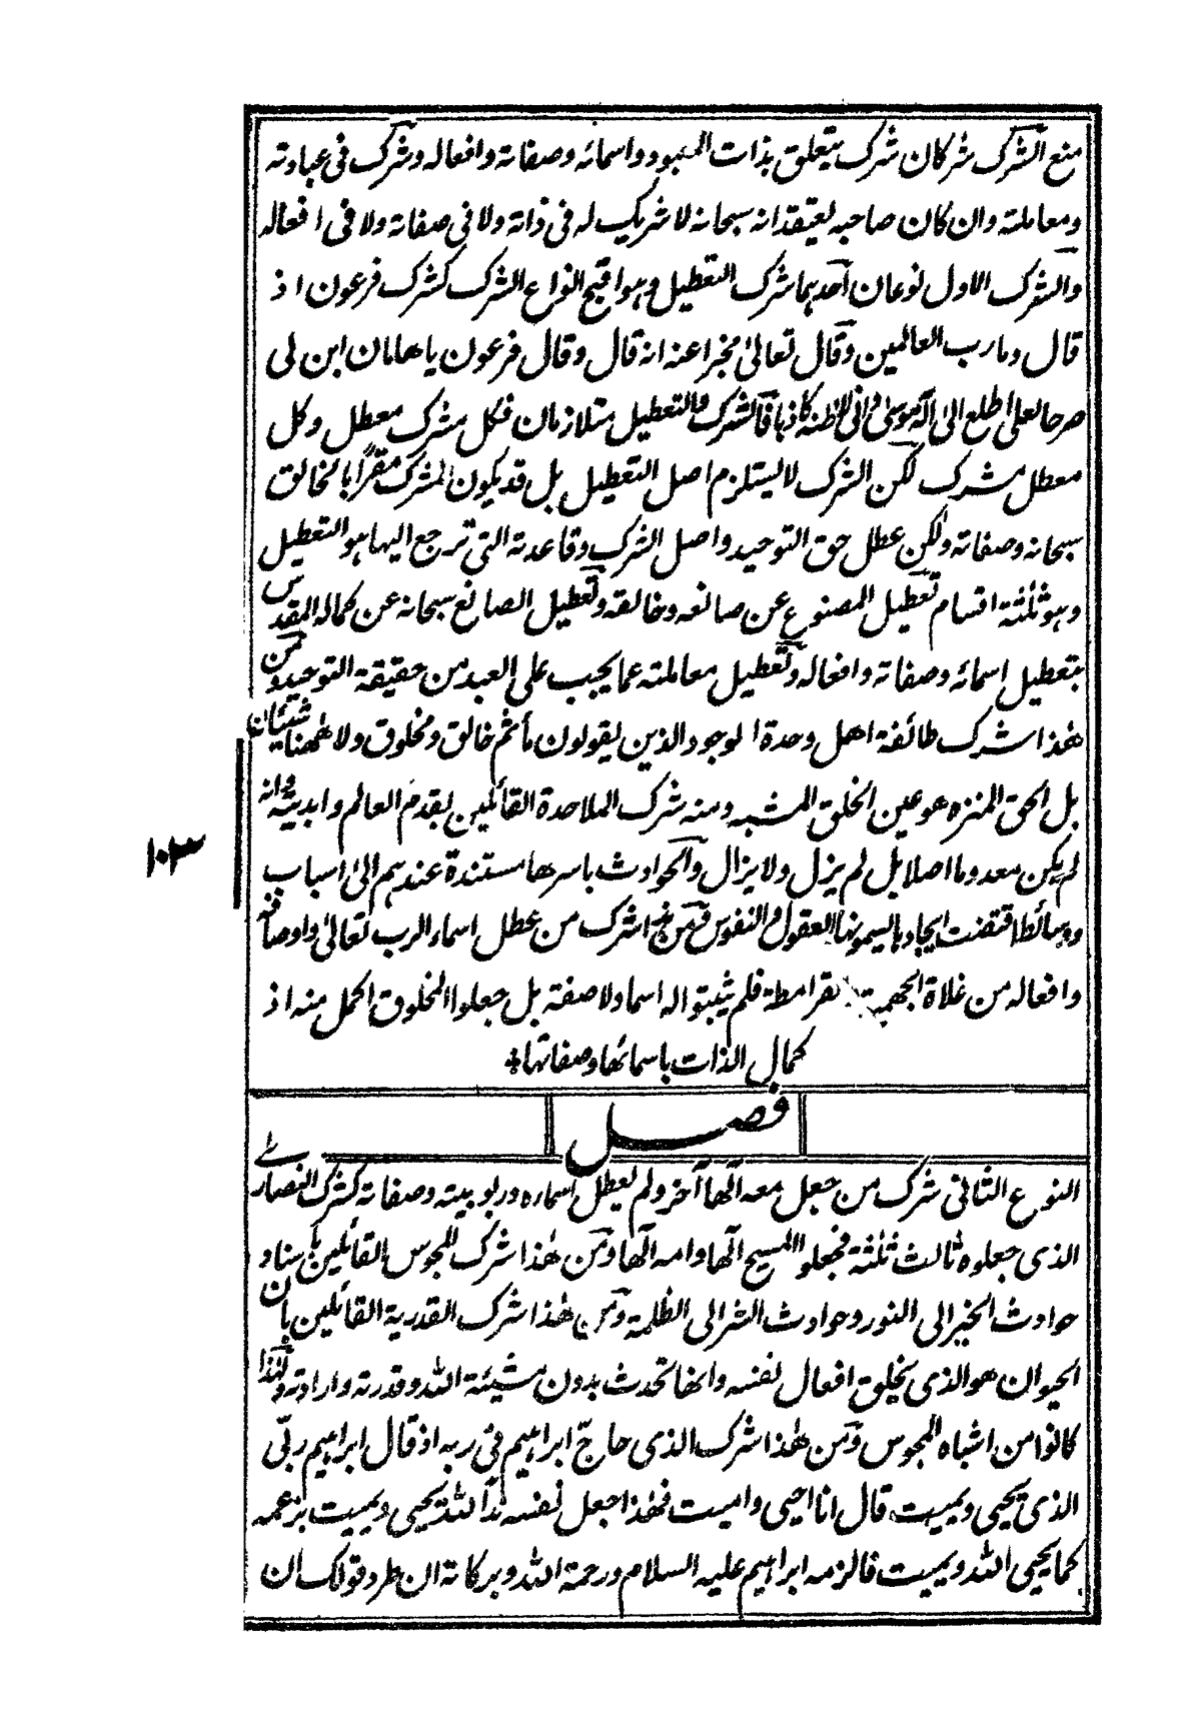 منع الشرك شركان شرك يتعلق بذات المعبود واسمائه وصفاته وافعاله وشرك فى عبادته
ومعاملته وان كان صاحبه يعتقد انه سبحانه لا شريك له فى ذاته ولا فى صفاته ولا فى افعاله
والشرك الاول نوعان احدهما شرك التعطيل وهو اقبح انواع الشرك كشرك فرعون اذ
قال وما رب العالمين وقال تعالىٰ مخبرا عنه انه قال وقال فرعون يا هامان ابن لى
صرحا لعلى اطلع الىٰ اله موسىٰ وانى لاظنه كاذبا فالشرك والتعطيل متلازمان فكل مشرك معطل وكل
معطل مشرك لكن الشرك لا يستلزم اصل التعطيل بل قد يكون المشرك مقرًا بالخالق
سبحانه وصفاته ولكن عطل حق التوحيد واصل الشرك وقاعدته التى ترجع اليها هو التعطيل
وهو ثلٰثة اقسام تعطيل المصنوع عن صانعه وخالقه وتعطيل الصانع سبحانه عن كماله المقدس
بتعطيل اسمائه وصفاته وافعاله وتعطيل معاملته عما يجب على العبد من حقيقة التوحيد ومن
هٰذا شرك طائفة اهل وحدة الوجود الذين يقولون ما ثم خالق ومخلوق ولا ههنا شيئان
بل الحق المنزه هو عين الخلق المشبه ومنه شرك الملاحدة القائلين بقدم العالم وابديته وانه
لم يكن معدوما اصلا بل لم يزل ولا يزال والحوادث باسرها مستندة عندهم الىٰ اسباب
ووسائط اقتضت ايجادها يسمونها العقول والنفوس ومن هٰذا شرك من عطل اسماء الرب تعالىٰ واوصافه
وافعاله من غلاة الجهمية والقرامطة فلم يثبتوا له اسما ولا صفة بل جعلوا المخلوق اكمل منه اذ
كمال الذات باسمائها وصفاتها
فصل
النوع الثانى شرك من جعل معه آلها آخر ولم يعطل اسماءه وربوبيته وصفاته كشرك النصارے
الذى جعلوه ثالث ثلٰثة فجعلوا المسيح آلها وامه آلها ومن هٰذا شرك المجوس القائلين باسناد
حوادث الخير الى النور وحوادث الشر الى الظلمة ومن هٰذا شرك القدرية القائلين بان
الحيوان هو الذى يخلق افعال نفسه وانها تحدث بدون مشيئة الله وقدرته وارادته ولهٰذا
كانوا من اشباه المجوس ومن هٰذا شرك الذى حاجّ ابراهيم فى ربه اذ قال ابراهيم ربّى
الذى يحيى ويميت قال انا احيى واميت فهٰذا جعل نفسه ندا لله يحيى ويميت بزعمه
كما يحيى الله ويميت فالزمه ابراهيم عليه السلام ورحمة الله وبركاته ان طرد قولك ان
۱۰۳